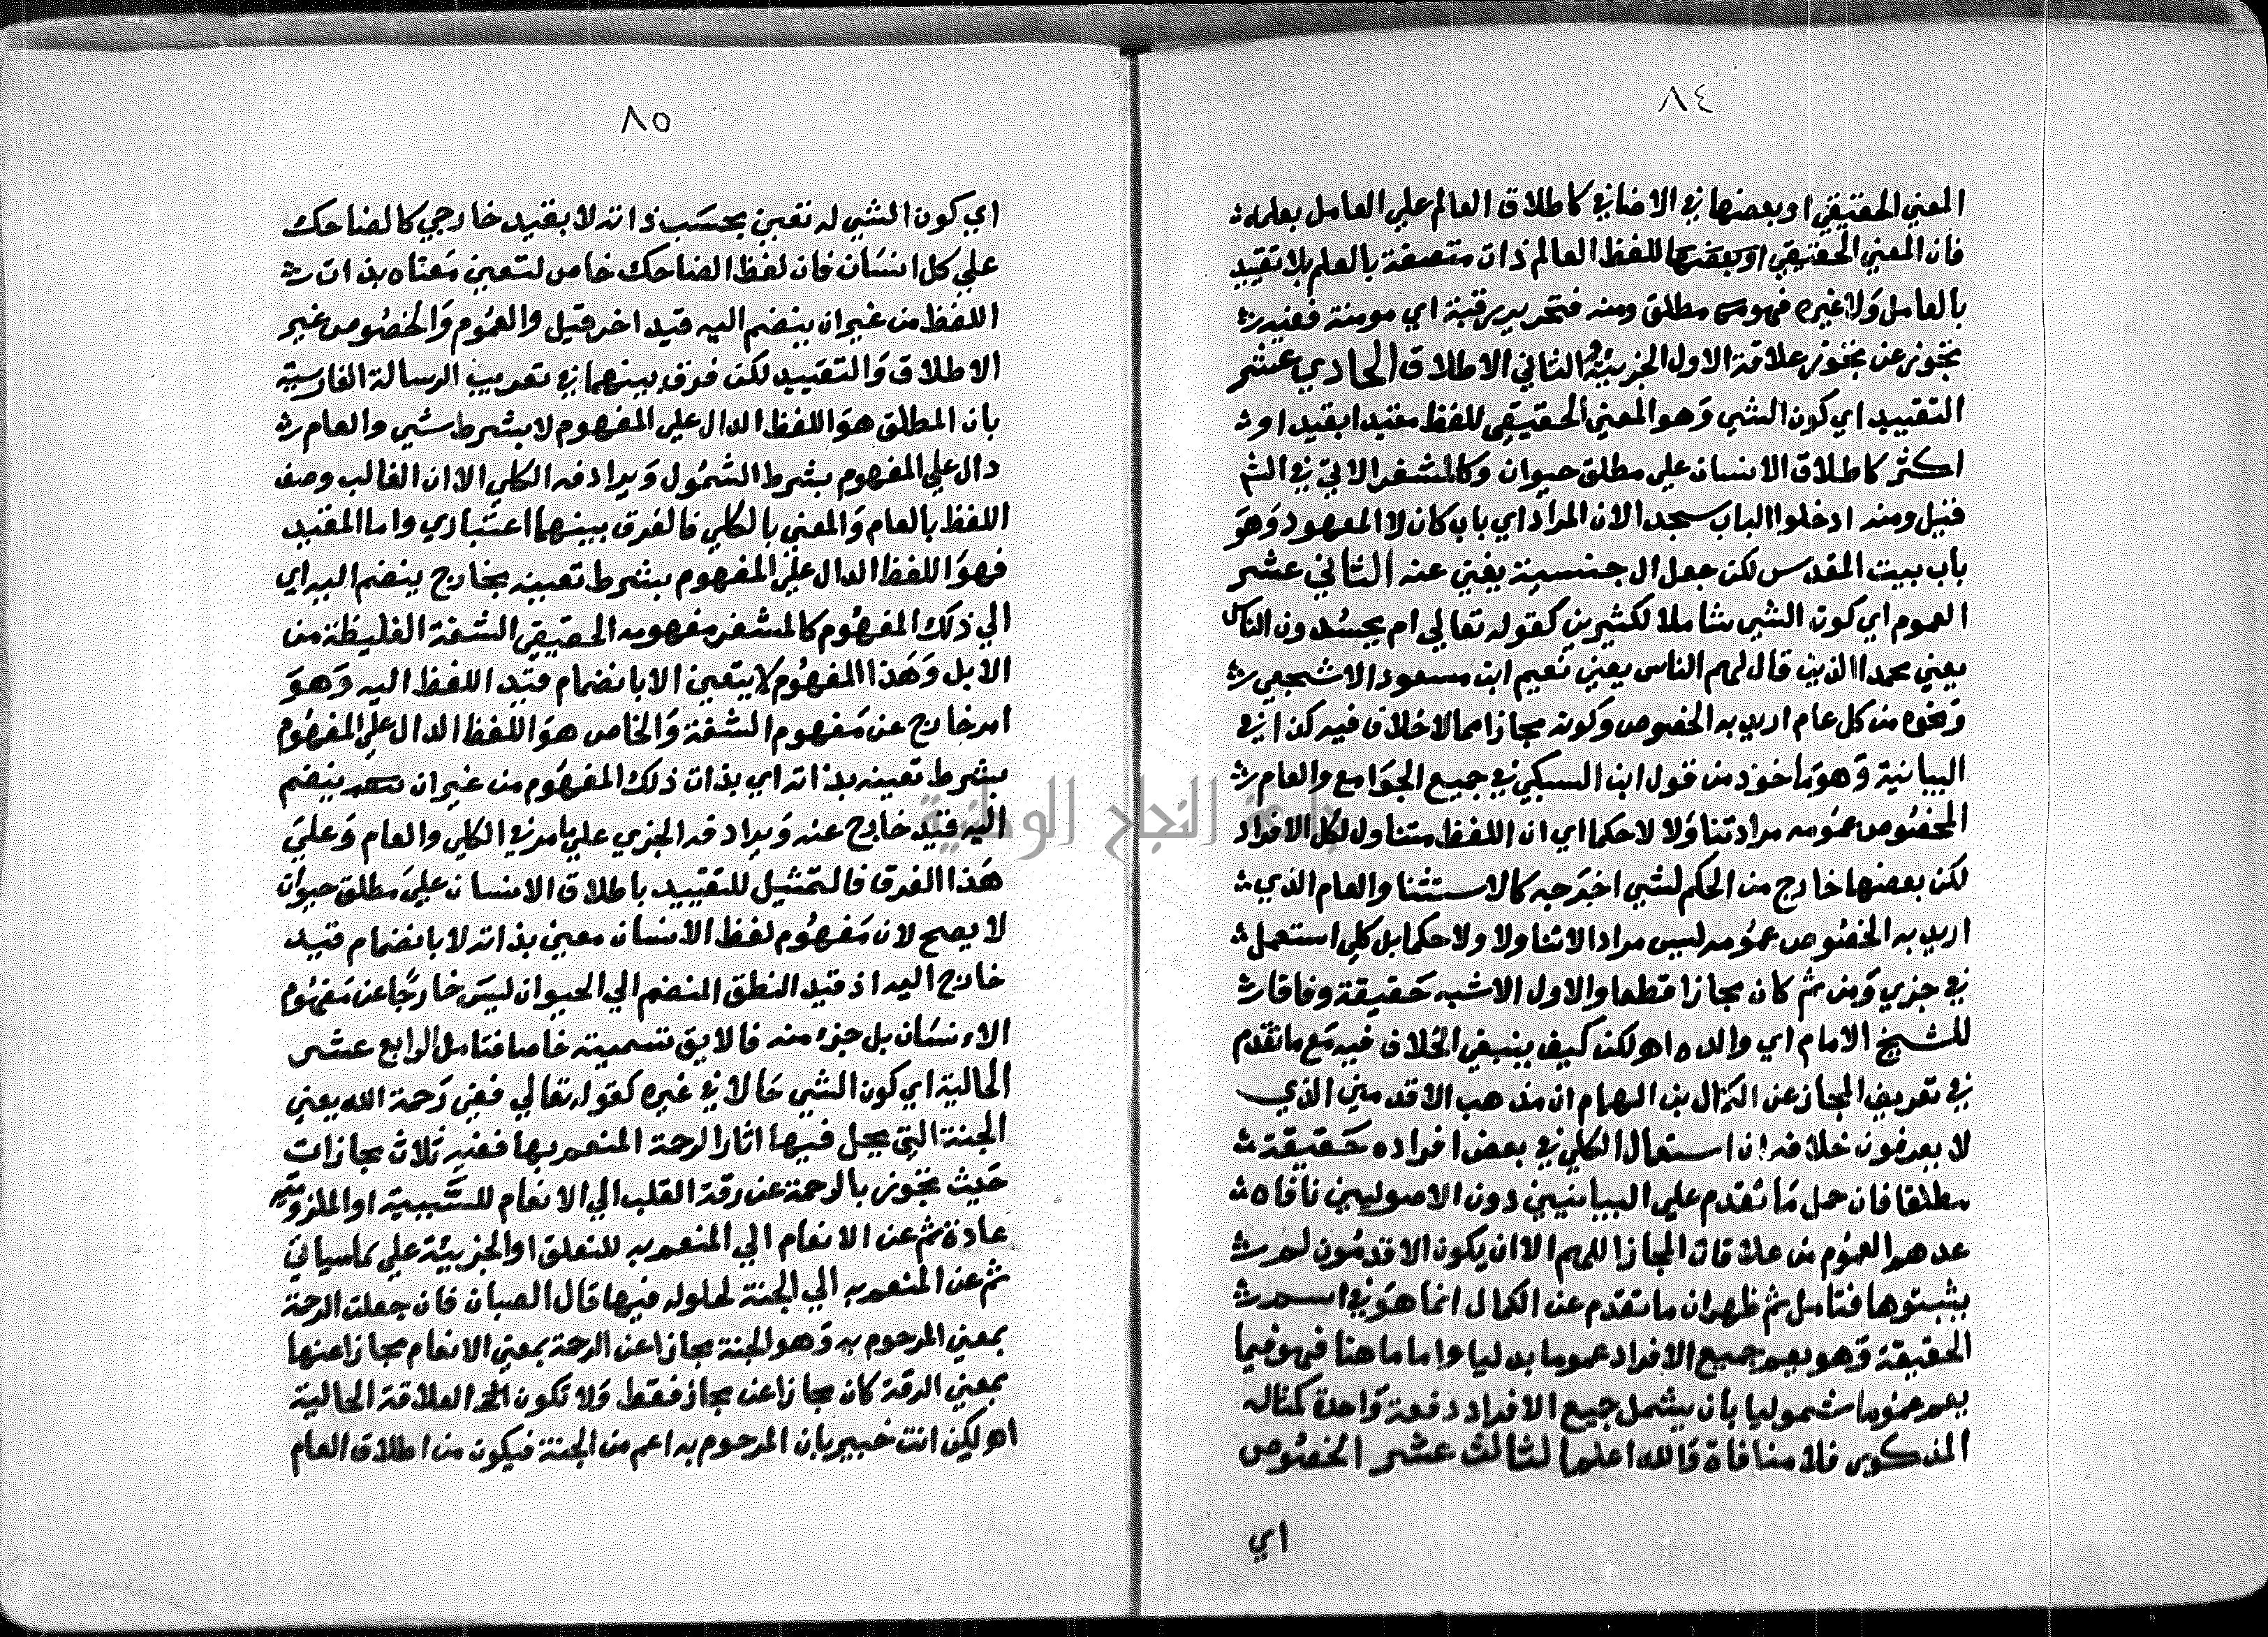 ٨٤
المعني الحقيقي او بعضها في الاضافي كاطلاق العالم علي العامل بعلمه
فان المعني الحقيقي للفظ العالم ذات متصفة بالعلم بلا تقييد
بالعامل ولا غيره فهو مطلق ومنه فتحرير رقبة اي مومنة ففيه
تجوز عن تجوز علاقة الاول الجزيية الثاني الاطلاق الحادي عشر
التقييد اي كون الشي وهو المعني الحقيقي للفظ مقيدا بقيد او
اكثر كاطلاق الانسان علي مطلق حيوان وكالمشفر الاتي في الشم
قيل ومنه ادخلوا الباب سجدا لان المراد اي باب كان لا المعهود وهو
باب بيت المقدس لكن جعل ال جنسية يغني عنه الثاني عشر
العموم اي كون الشي شاملا لكثيرين كقوله تعالي ام يحسدون الناس
يعني محمدا الذين قال لهم الناس يعني نعيم ابن مسعود الاشجعي
ونحوه من كل عام اريد به الخصوص وكونه مجازا مما لا خلاف فيه كذا في
البيانية وهو ماخوذ من قول ابن السبكي في جميع الجوامع والعام
المخصوص عمومه مراد تناولا لا حكما اي ان اللفظ متناول لكل الافراد
لكن بعضها خارج من الحكم لشي اخرجه كالاستثنا والعام الذي
اريد به الخصوص عمومه ليس مرادا لا تناولا ولا حكما بل كلي استعمل
في جزي ومن ثم كان مجازا قطعا والاول الاشبه حقيقة وفاقا
للشيخ الامام اي والده اه لكن كيف ينبغي الخلاف فيه مع ما تقدم
في تعريف المجاز عن الكمال بن الهمام ان مذهب الاقدمين الذي
لا يعرفون خلافه ان استعمال الكلي في بعض افراده حقيقة
مطلقا فان حمل ما تقدم علي البيانيين دون الاصوليين نافاه
عدهم العموم من علاقات المجاز اللهم الا ان يكون الاقدمون لم
يثبتوها فتامل ثم ظهران ما تقدم عن الكمال انما هو في اسم
الحقيقة وهو يعم جميع الافراد عموما بدليا واما ما هنا فهو فيما
يعم عموما شموليا بان يشمل جميع الافراد دفعة واحدة كمثاله
المذكور فلا منافاة والله اعلم الثالث عشر الخصوص
اي
٨٥
اي كون الشي له تعين بحسب ذاته لا بقيد خارجي كالضاحك
علي كل انسان فان لفظ الضاحك خاص لتعين معناه بذات
اللفظ من غير ان ينضم اليه قيد اخر قيل والعموم والخصوص غير
الاطلاق والتقييد لكن فرق بينهما في تعريب الرسالة الفارسية
بان المطلق هو اللفظ الدال علي المفهوم لا بشرط شي والعام
دال علي المفهوم بشرط الشمول ويرادفه الكلي الا ان الغالب وصف
اللفظ بالعام والمعني بالكلي فالفرق بينهما اعتباري واما المقيد
فهو اللفظ الدال علي المفهوم بشرط تعينه بخارج ينضم اليه اي
الي ذلك المفهوم كالمشفر مفهومه الحقيقي الشفة الغليظة من
الابل وهذا المفهوم لا يتعين الا بانضمام قيد اللفظ اليه وهو
امر خارج عن مفهوم الشفة والخاص هو اللفظ الدال علي المفهوم
بشرط تعينه بذاته اي بذات ذلك المفهوم من غير ان ينضم
اليه قيد خارج عنه ويرادفه الجزي علي ما مر في الكلي والعام وعلي
هذا الفرق فالتمثيل للتقييد باطلاق الانسان علي مطلق حيوان
لا يصح لان مفهوم لفظ الانسان معين بذاته لا بانضمام قيد
خارج اليه اذ قيد النطق المنضم الي الحيوان ليس خارجا عن مفهوم
الانسان بل جزء منه فالايق تسميته خاصا فتامل الرابع عشر
الحالية اي كون الشي حالا في غيره كقوله تعالي ففي رحمة الله يعني
الجنة التي يحل فيها اثار الرحمة المنعم بها ففيه ثلاث مجازات
حيث تجوز بالرحمة عن رقة القلب الي الانعام للسببية او الملزومية
عادة ثم عن الانعام الي المنعم به للتعلق او الجزيية علي ما سياتي
ثم عن المنعم به الي الجنة لحلوله فيها قال الصبان فان جعلت الرحمة
بمعني المرحوم به وهو الجنة مجازا عن الرحمة بمعني الانعام مجازا عنها
بمعني الرقة كان مجازا عن مجاز فقط ولا تكون العلاقة الحالية
اه لكن انت خبير بان المرحوم به اعم من الجنة فيكون من اطلاق العام
جامعة النجاح الوطنية